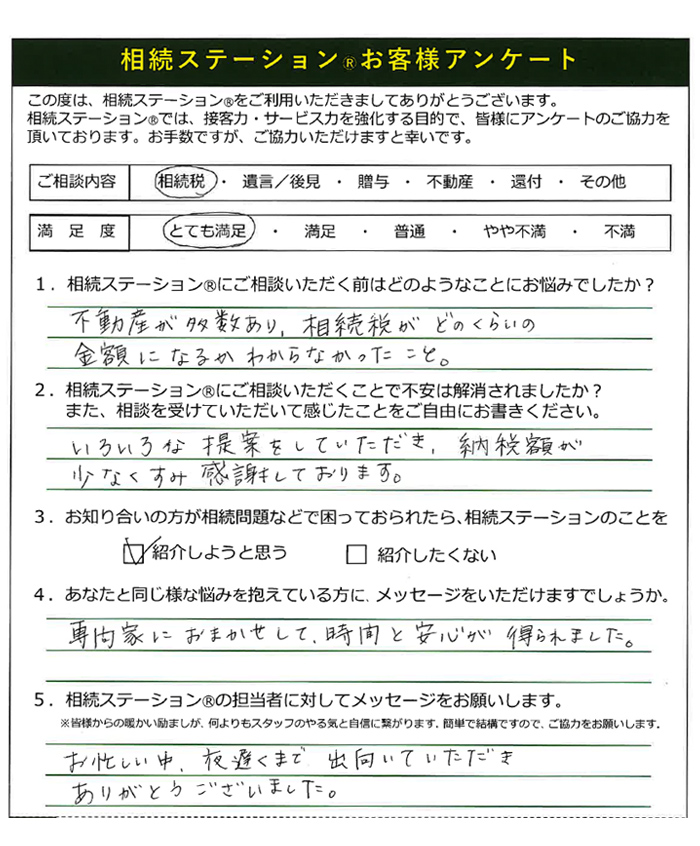 相続ステーション®お客様アンケート
この度は、相続ステーション®をご利用いただきましてありがとうございます。
相続ステーション®では、接客力・サービス力を強化する目的で、皆様にアンケートのご協力を
頂いております。お手数ですが、ご協力いただけますと幸いです。
ご相談内容 相続税 ・ 遺言／後見 ・ 贈与 ・ 不動産 ・ 還付 ・ その他
満足度 とても満足 ・ 満足 ・ 普通 ・ やや不満 ・ 不満
1．相続ステーション®にご相談いただく前はどのようなことにお悩みでしたか？
不動産が多数あり、相続税がどのくらいの
金額になるかわからなかったこと。
2．相続ステーション®にご相談いただくことで不安は解消されましたか？
また、相談を受けていただいて感じたことをご自由にお書きください。
いろいろな提案をしていただき、納税額が
少なくすみ感謝しております。
3．お知り合いの方が相続問題などで困っておられたら、相続ステーションのことを
☑紹介しようと思う □ 紹介したくない
4．あなたと同じ様な悩みを抱えている方に、メッセージをいただけますでしょうか。
専門家におまかせして、時間と安心が得られました。
5．相続ステーション®の担当者に対してメッセージをお願いします。
※皆様からの暖かい励ましが、何よりもスタッフのやる気と自信に繋がります。簡単で結構ですので、ご協力をお願いします。
お忙しい中、夜遅くまで出向いていただき
ありがとうございました。